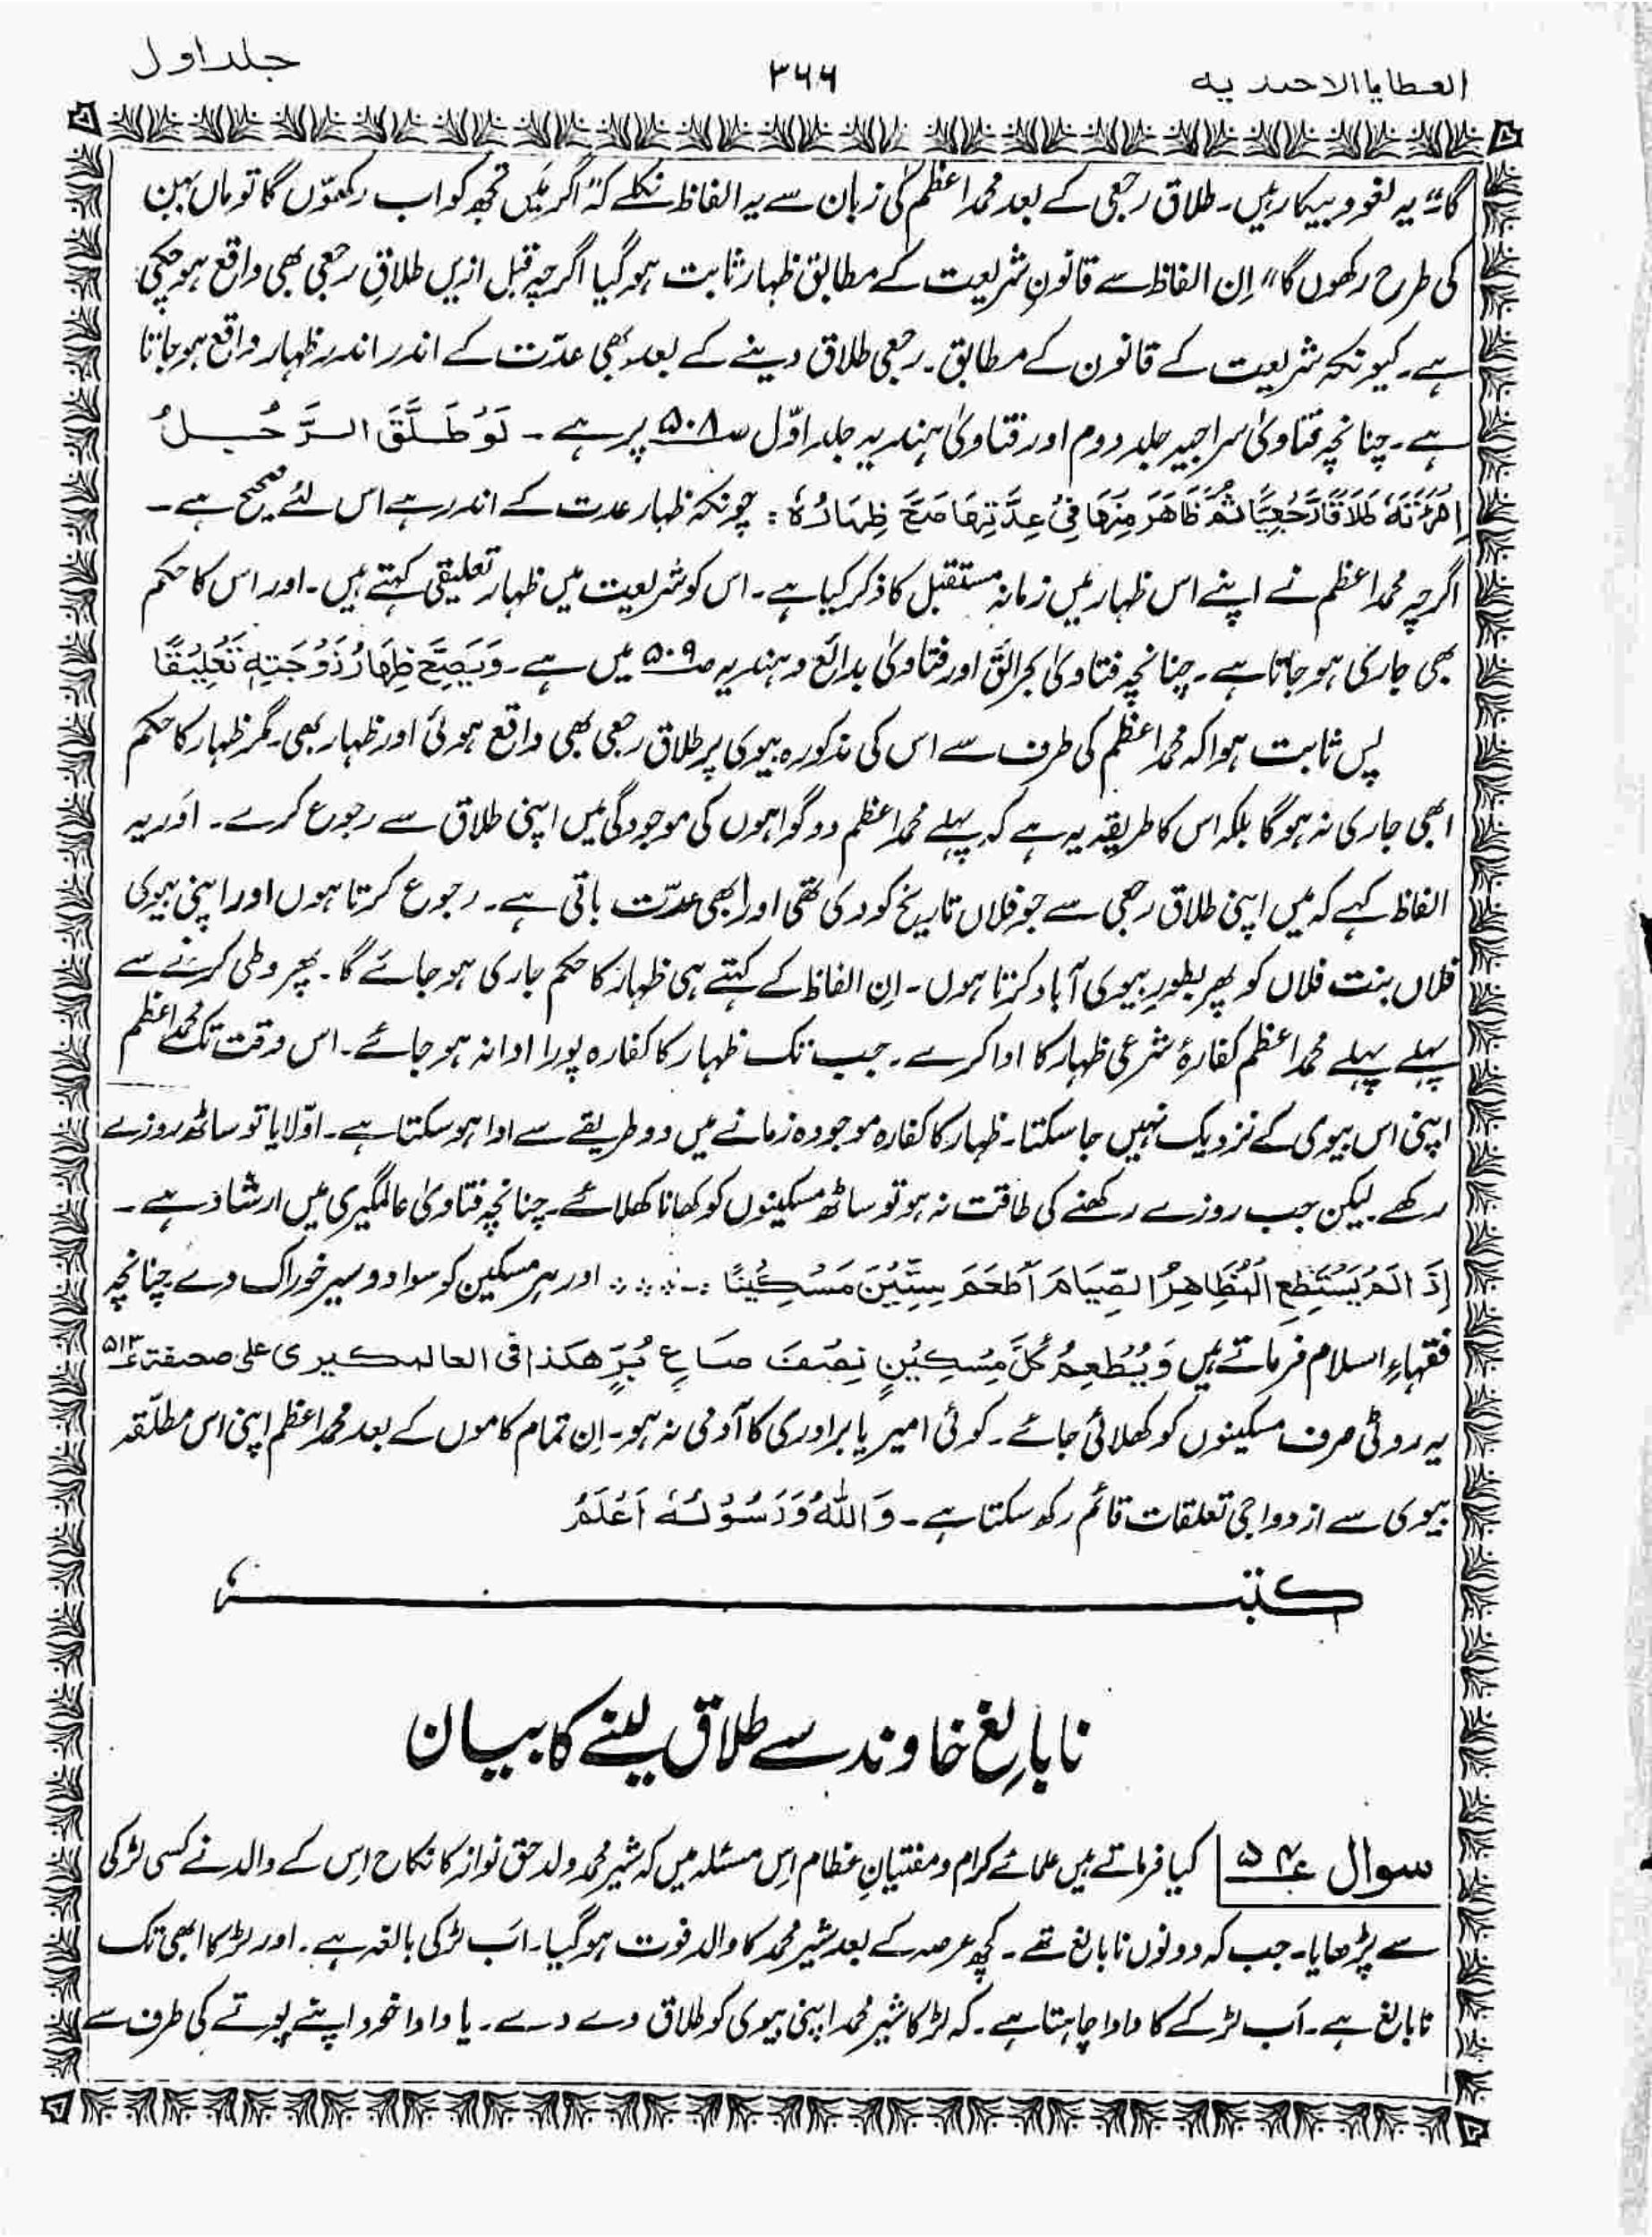 العطایا الاحمدیہ
۳۶۶
جلد اول
گا"۔ یہ لغو و بیکار ہیں۔ طلاق رجعی کے بعد محمد اعظم کی زبان سے یہ الفاظ نکلے کہ "اگر میں تجھ کو اب رکھوں گا تو ماں بہن
کی طرح رکھوں گا" اِن الفاظ سے قانونِ شریعت کے مطابق ظہار ثابت ہو گیا اگرچہ قبل ازیں طلاقِ رجعی بھی واقع ہو چکی
ہے۔ کیونکہ شریعت کے قانون کے مطابق۔ رجعی طلاق دینے کے بعد بھی عدّت کے اندر اندر ظہار واقع ہو جاتا
ہے۔ چنانچہ فتاویٰ سراجیہ جلد دوم اور فتاویٰ ہندیہ جلد اوّل صـ۵۰۸ پر ہے۔ لَوْ طَلَّقَ الرَّجُلُ
اِمْرَءَتَہٗ طَلَاقًا رَجْعِیًّا ثُمَّ ظَاھَرَ مِنْھَا فِیْ عِدَّتِھَا صَحَّ ظِھَارُہٗ : چونکہ ظہار عدت کے اندر ہے اس لئے صحیح ہے۔
اگرچہ محمد اعظم نے اپنے اس ظہار میں زمانہ مستقبل کا ذکر کیا ہے۔ اس کو شریعت میں ظہار تعلیقی کہتے ہیں۔ اور اس کا حکم
بھی جاری ہو جاتا ہے۔ چنانچہ فتاویٰ بحر الائق اور فتاویٰ بدائع و ہندیہ صـ۵۰۹ میں ہے۔ وَیَصِحُّ ظِھَارُ زَوْجَتِہٖ تَعْلِیْقًا
پس ثابت ہوا کہ محمد اعظم کی طرف سے اس کی مذکورہ بیوی پر طلاق رجعی بھی واقع ہوئی اور ظہار بھی۔ مگر ظہار کا حکم
ابھی جاری نہ ہوگا بلکہ اس کا طریقہ یہ ہے کہ پہلے محمد اعظم دو گواہوں کی موجودگی میں اپنی طلاق سے رجوع کرے۔ اور یہ
الفاظ کہے کہ میں اپنی طلاق رجعی سے جو فلاں تاریخ کو دی تھی اور ابھی عدّت باقی ہے۔ رجوع کرتا ہوں اور اپنی بیوی
فلاں بنت فلاں کو پھر بطورِ بیوی آباد کرتا ہوں۔ اِن الفاظ کے کہتے ہی ظہار کا حکم جاری ہو جائے گا۔ پھر وطی کرنے سے
پہلے پہلے محمد اعظم کفارۂ شرعی ظہار کا ادا کرے۔ جب تک ظہار کا کفارہ پورا ادا نہ ہو جائے۔ اس وقت تک محمد اعظم
اپنی اس بیوی کے نزدیک نہیں جا سکتا۔ ظہار کا کفارہ موجودہ زمانے میں دو طریقے سے ادا ہو سکتا ہے۔ اوّلا یا تو ساٹھ روزے
رکھے۔ لیکن جب روزے رکھنے کی طاقت نہ ہو تو ساٹھ مسکینوں کو کھانا کھلائے۔ چنانچہ فتاویٰ عالمگیری میں ارشاد ہے۔
اِذَ الَمْ یَسْتَطِعِ الْمُظَاھِرُ الصِّیَامَ اَطْعَمَ سِتِّیْنَ مَسْکِیْنًا ۔ اور ہر مسکین کو سوا دو سیر خوراک دے چنانچہ
فقہاءِ اسلام فرماتے ہیں وَیُطْعِمُ کُلَّ مِسْکِیْنٍ نِصْفَ صَاعٍ بُرٍّ ھکذا فی العالمکیری علی صحفتہ ۵۱۳
یہ روٹی صرف مسکینوں کو کھلائی جائے۔ کوئی امیر یا برادری کا آدمی نہ ہو۔ اِن تمام کاموں کے بعد محمد اعظم اپنی اس مطلّقہ
بیوی سے ازدواجی تعلقات قائم رکھ سکتا ہے۔ وَاللّٰہُ وَرَسُوْلُہٗ اَعْلَمُ
کتبہ
نابالِغ خاوند سے طلاق لینے کا بیان
سوال ۵۴ کیا فرماتے ہیں علمائے کرام و مفتیانِ عظام اِس مسئلہ میں کہ شیر محمد ولد حق نواز کا نکاح اِس کے والد نے کسی لڑکی
سے پڑھایا۔ جب کہ دونوں نابالغ تھے۔ کچھ عرصہ کے بعد شیر محمد کا والد فوت ہو گیا۔ اَب لڑکی بالغہ ہے۔ اور لڑکا ابھی تک
نابالغ ہے۔ اَب لڑکے کا دادا چاہتا ہے۔ کہ لڑکا شیر محمد اپنی بیوی کو طلاق دے دے۔ یا دادا خود اپنے پوتے کی طرف سے